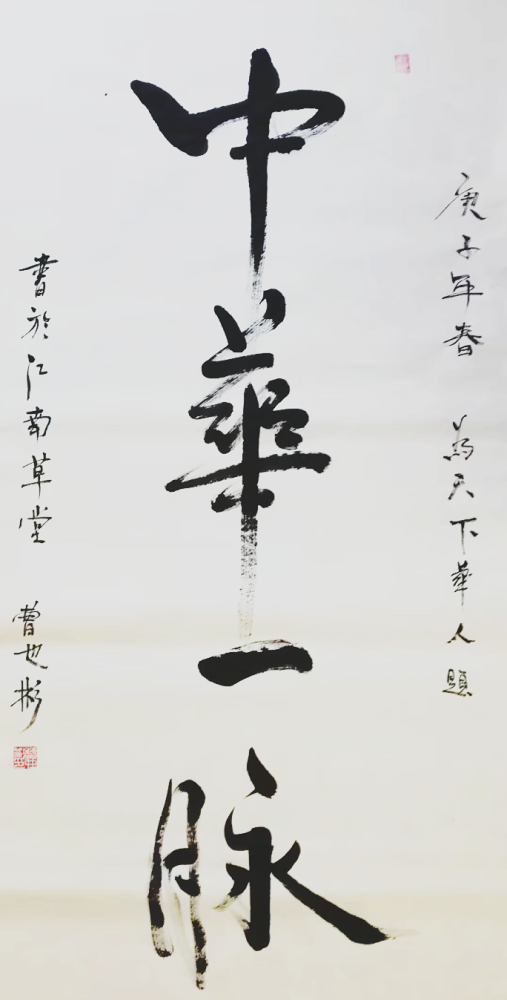 庚子年春 為天下華人題
中華一脉
書於江南草堂 曹也彬